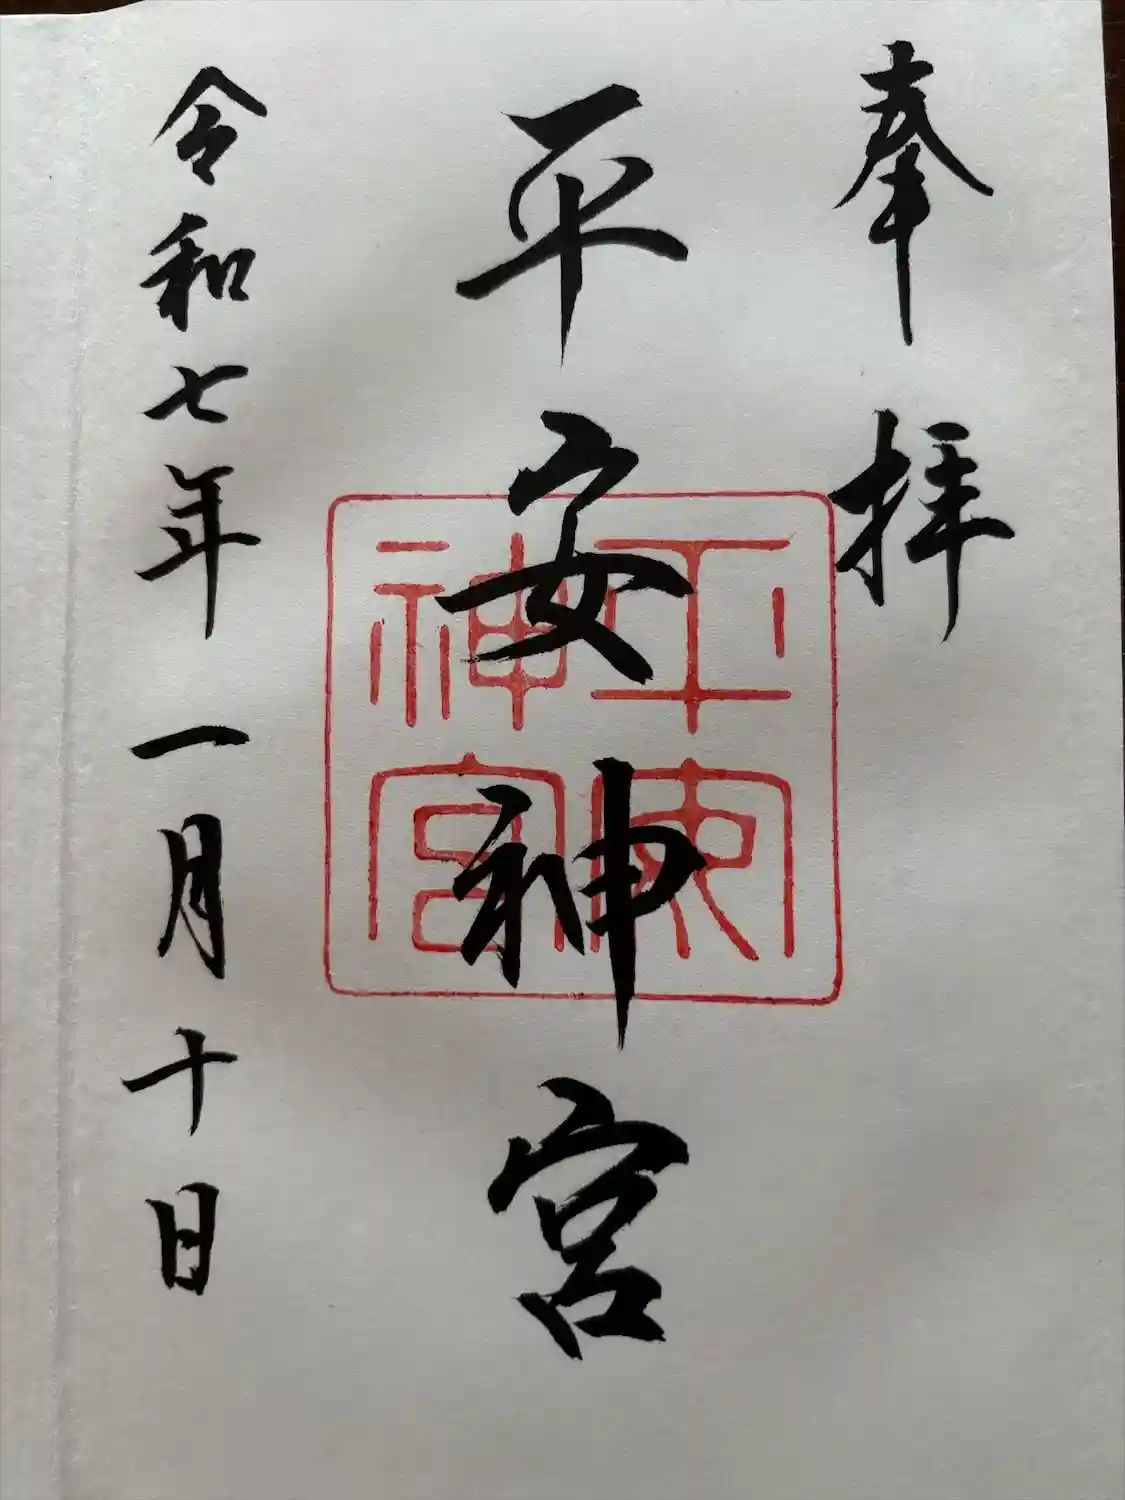 奉拝
平安神宮
平安神宮
令和七年一月十日